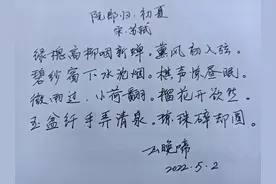 阮郎归·初夏
宋·苏轼
绿槐高柳咽新蝉。薰风初入弦。
碧纱窗下水沉烟。棋声惊昼眠。
微雨过，小荷翻。榴花开欲然。
玉盆纤手弄清泉。琼珠碎却圆。
2022.5.2